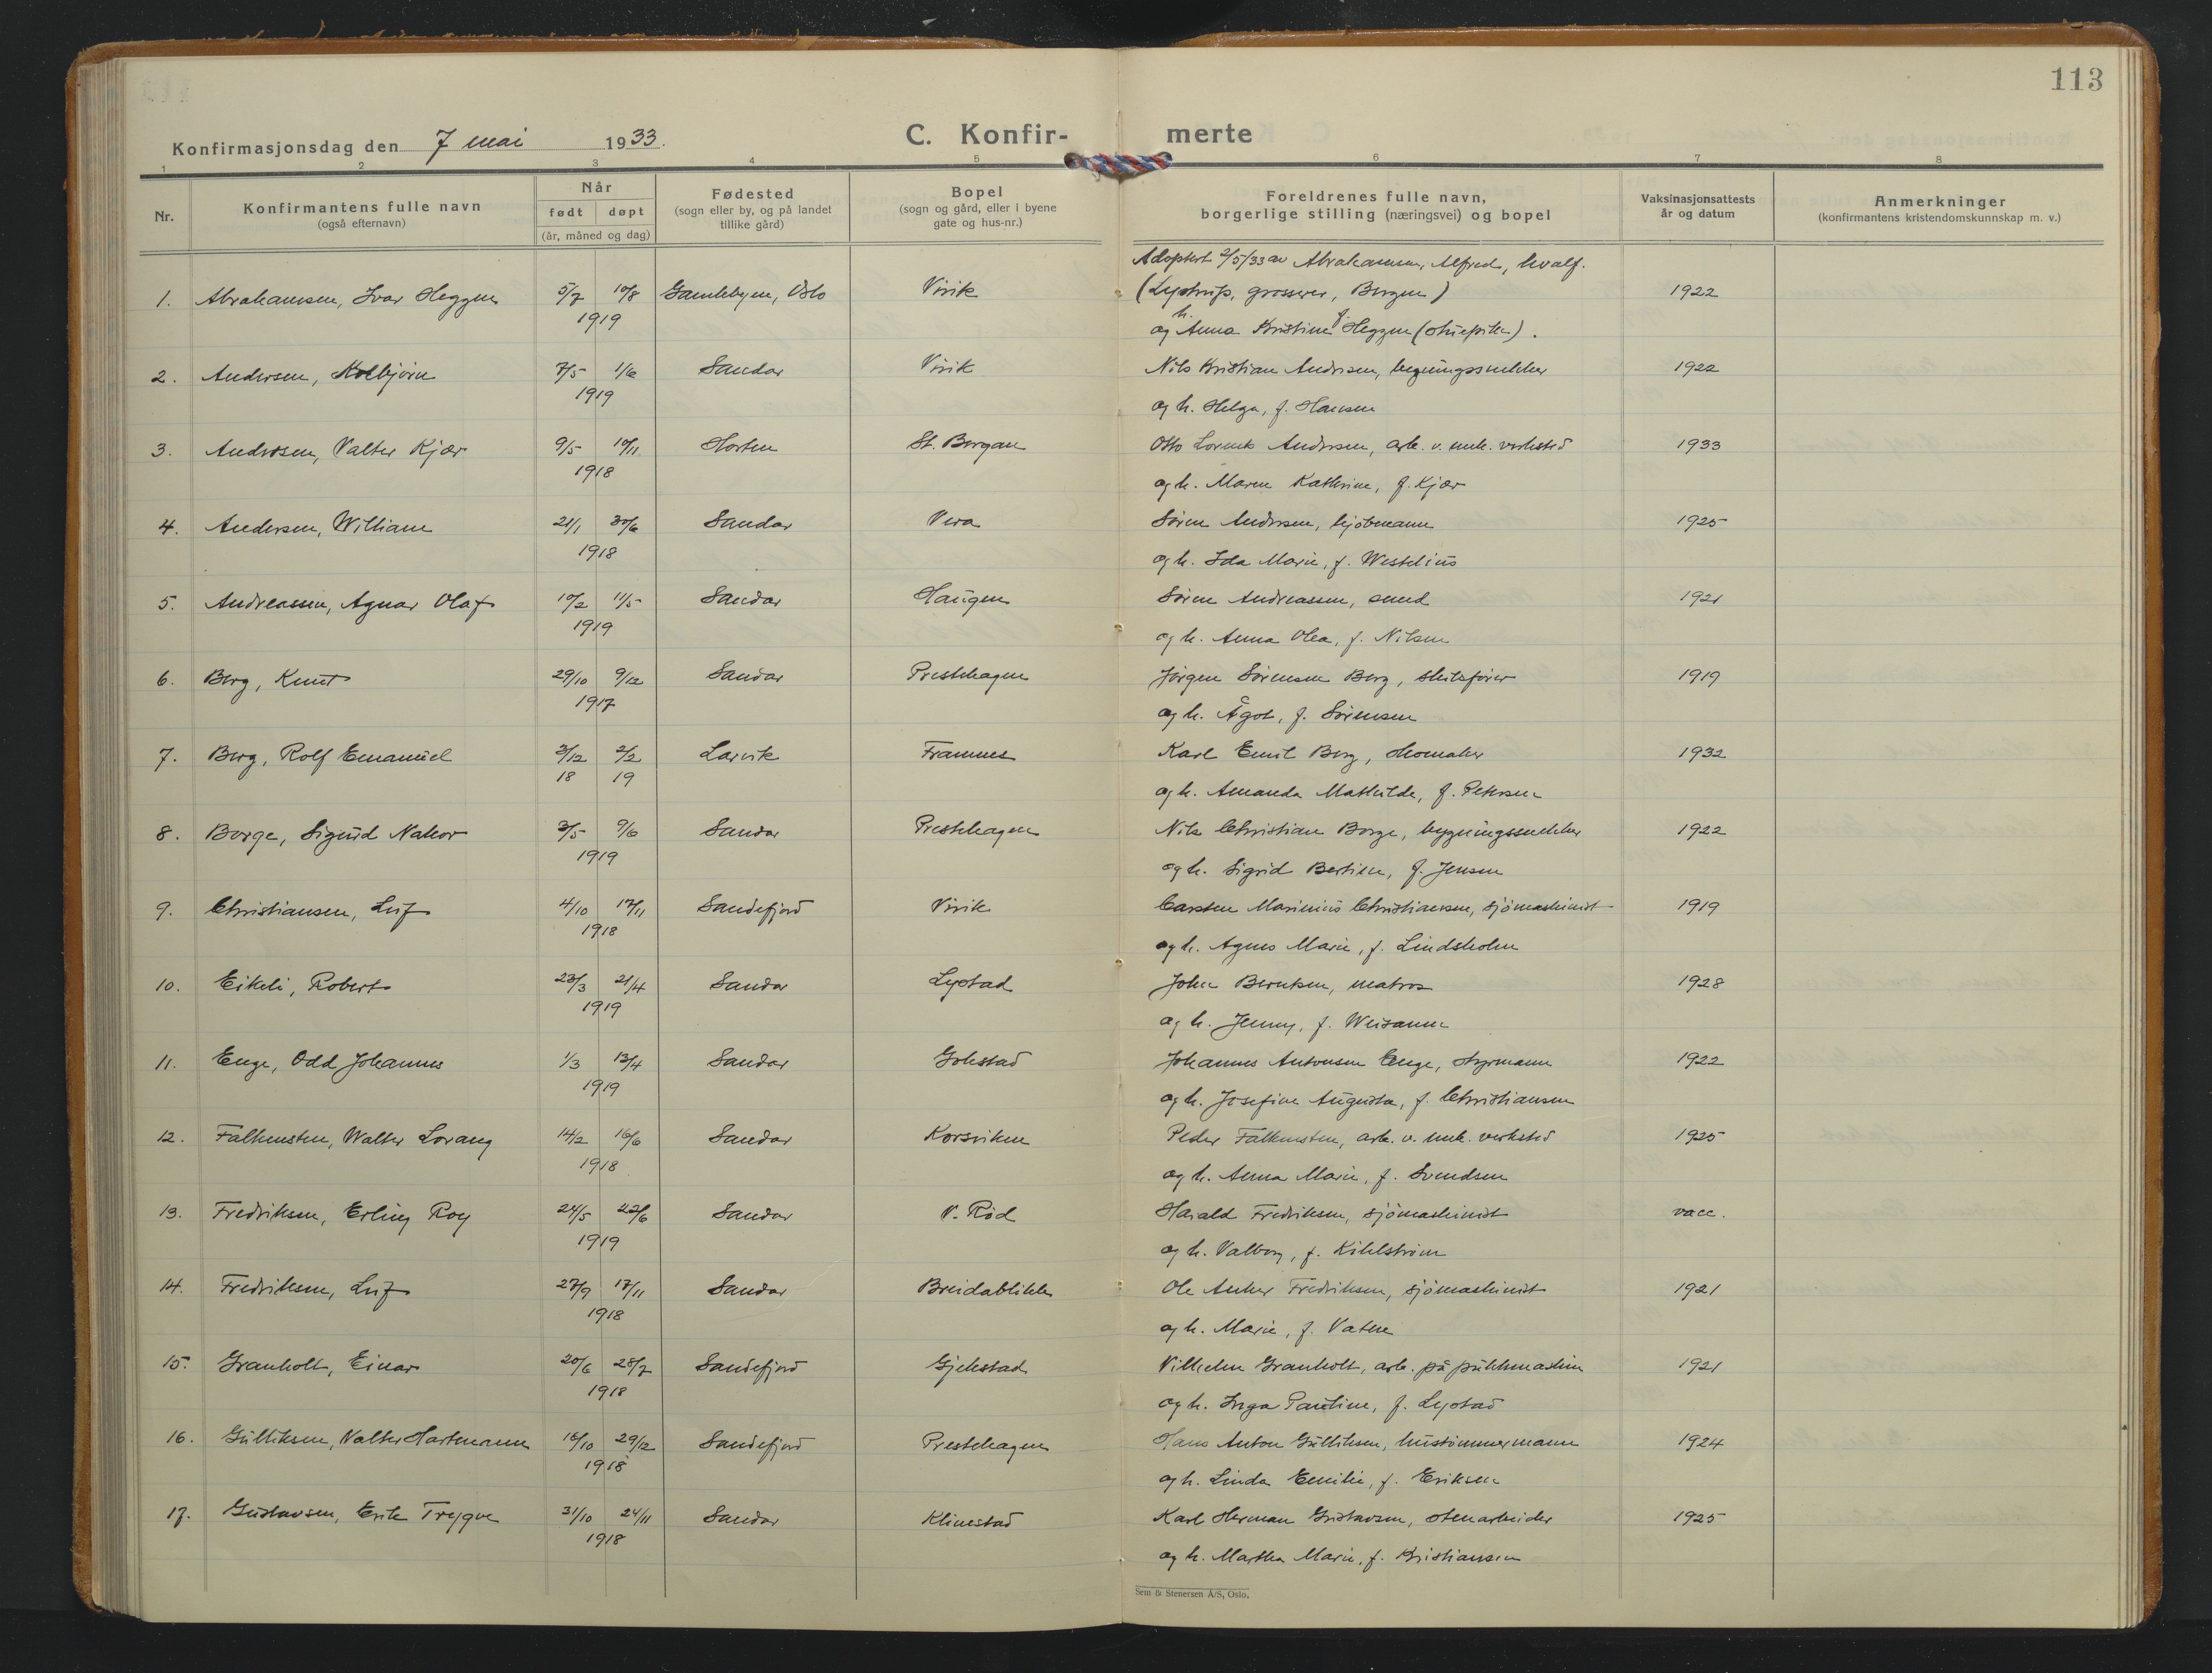 113
Konfirmasjonsdag den 7 mai 1933.
C. Konfir- merte
1 2 3 4 5 6 7 8
Nr.
Konfirmantens fulle navn
(også efternavn)
Når
født døpt
(år, måned og dag)
Fødested
(sogn eller by, og på landet
tillike gård)
Bopel
(sogn og gård, eller i byene
gate og hus-nr.)
Foreldrenes fulle navn,
borgerlige stilling (næringsvei) og bopel
Vaksinasjonsattests
år og datum
Anmerkninger
(konfirmantens kristendomskunnskap m. v.)
Adoptert 2/5/33 av Abrahamsen, Alfred, hvalf.
1. Abrahamsen, Ivar Heggen 5/7 10/8 Gamlebyen, Oslo Virik (Lystrup, grosserer, Bergen) 1922
1919 og h. Anna Kristine f. Heggen (stuepike).
2. Andersen, Kolbjörn 7/5 1/6 Sandar Virik Nils Kristian Andersen, bygningssnekker 1922
1919 og h. Helga, f. Hansen
3. Andersen, Valter Kjær 9/5 10/11 Horten St. Bergan Otto Lorentz Andersen, arb. v. mek. verksted 1933
1918 og h. Maren Kathrine, f. Kjær
4. Andersen, William 21/1 30/6 Sandar Vera Sören Andersen, kjöbmann 1925
1918 og h. Ida Marie, f. Westelius
5. Andreassen, Agnar Olaf 10/2 11/5 Sandar Haugen Sören Andreassen, smed 1921
1919 og h. Anna Olea, f. Nilsen
6. Berg, Knut 29/10 9/12 Sandar Prestehagen Jörgen Sörensen Berg, skibsförer 1919
1917 og h. Ågot, f. Sörensen
7. Berg, Rolf Emanuel 3/12 2/2 Larvik Framnes Karl Emil Berg, skomaker 1932
18 19 og h. Amanda Mathilde, f. Petersen
8. Borge, Sigurd Nakor 3/5 9/6 Sandar Prestehagen Nils Christian Borge, bygningssnekker 1922
1919 og h. Sigrid Bertine, f. Jensen
9. Christiansen, Leif 4/10 17/11 Sandefjord Virik Carsten Marinius Christiansen, sjömaskinist 1919
1918 og h. Agnes Marie, f. Lindsholm
10. Eikeli, Robert 23/3 21/4 Sandar Lystad John Berntsen, matros 1928
1919 og h. Jenny, f.
11. Enge, Odd Johannes 1/3 13/4 Sandar Gokstad Johannes Antonsen Enge, styrmann 1922
1919 og h. Josefine Augusta, f. Christiansen
12. Falkensten, Walter Lorang 14/2 16/6 Sandar Korsviken Peder Falkensten, arb. v. mek. verksted 1925
1918 og h. Anna Marie, f. Svendsen
13. Fredriksen, Erling Roy 24/5 22/6 Sandar V. Röd Harald Fredriksen, sjömaskinist vacc.
1919 og h. Valborg, f. Kihlström
14. Fredriksen, Leif 27/9 17/11 Sandar Breidablikk Ole Anker Fredriksen, sjömaskinist 1921
1918 og h. Marie, f. Vatne
15. Granholt, Einar 20/6 28/7 Sandefjord Gjekstad Vilhelm Granholt, arb. på pukkmaskin 1921
1918 og h. Inga Pauline, f. Lystad
16. Gulliksen, Valter Hartmann 18/10 29/12 Sandefjord Prestehagen Hans Anton Gulliksen, hustömmermann 1924
1918 og h. Linda Emilie, f. Eriksen
17. Gustavsen, Erik Trygve 31/10 24/11 Sandar Klinestad Karl Herman Gustavsen, stenarbeider 1925
1918 og h. Martha Marie, f. Kristiansen
Sem & Stenersen A/S, Oslo.